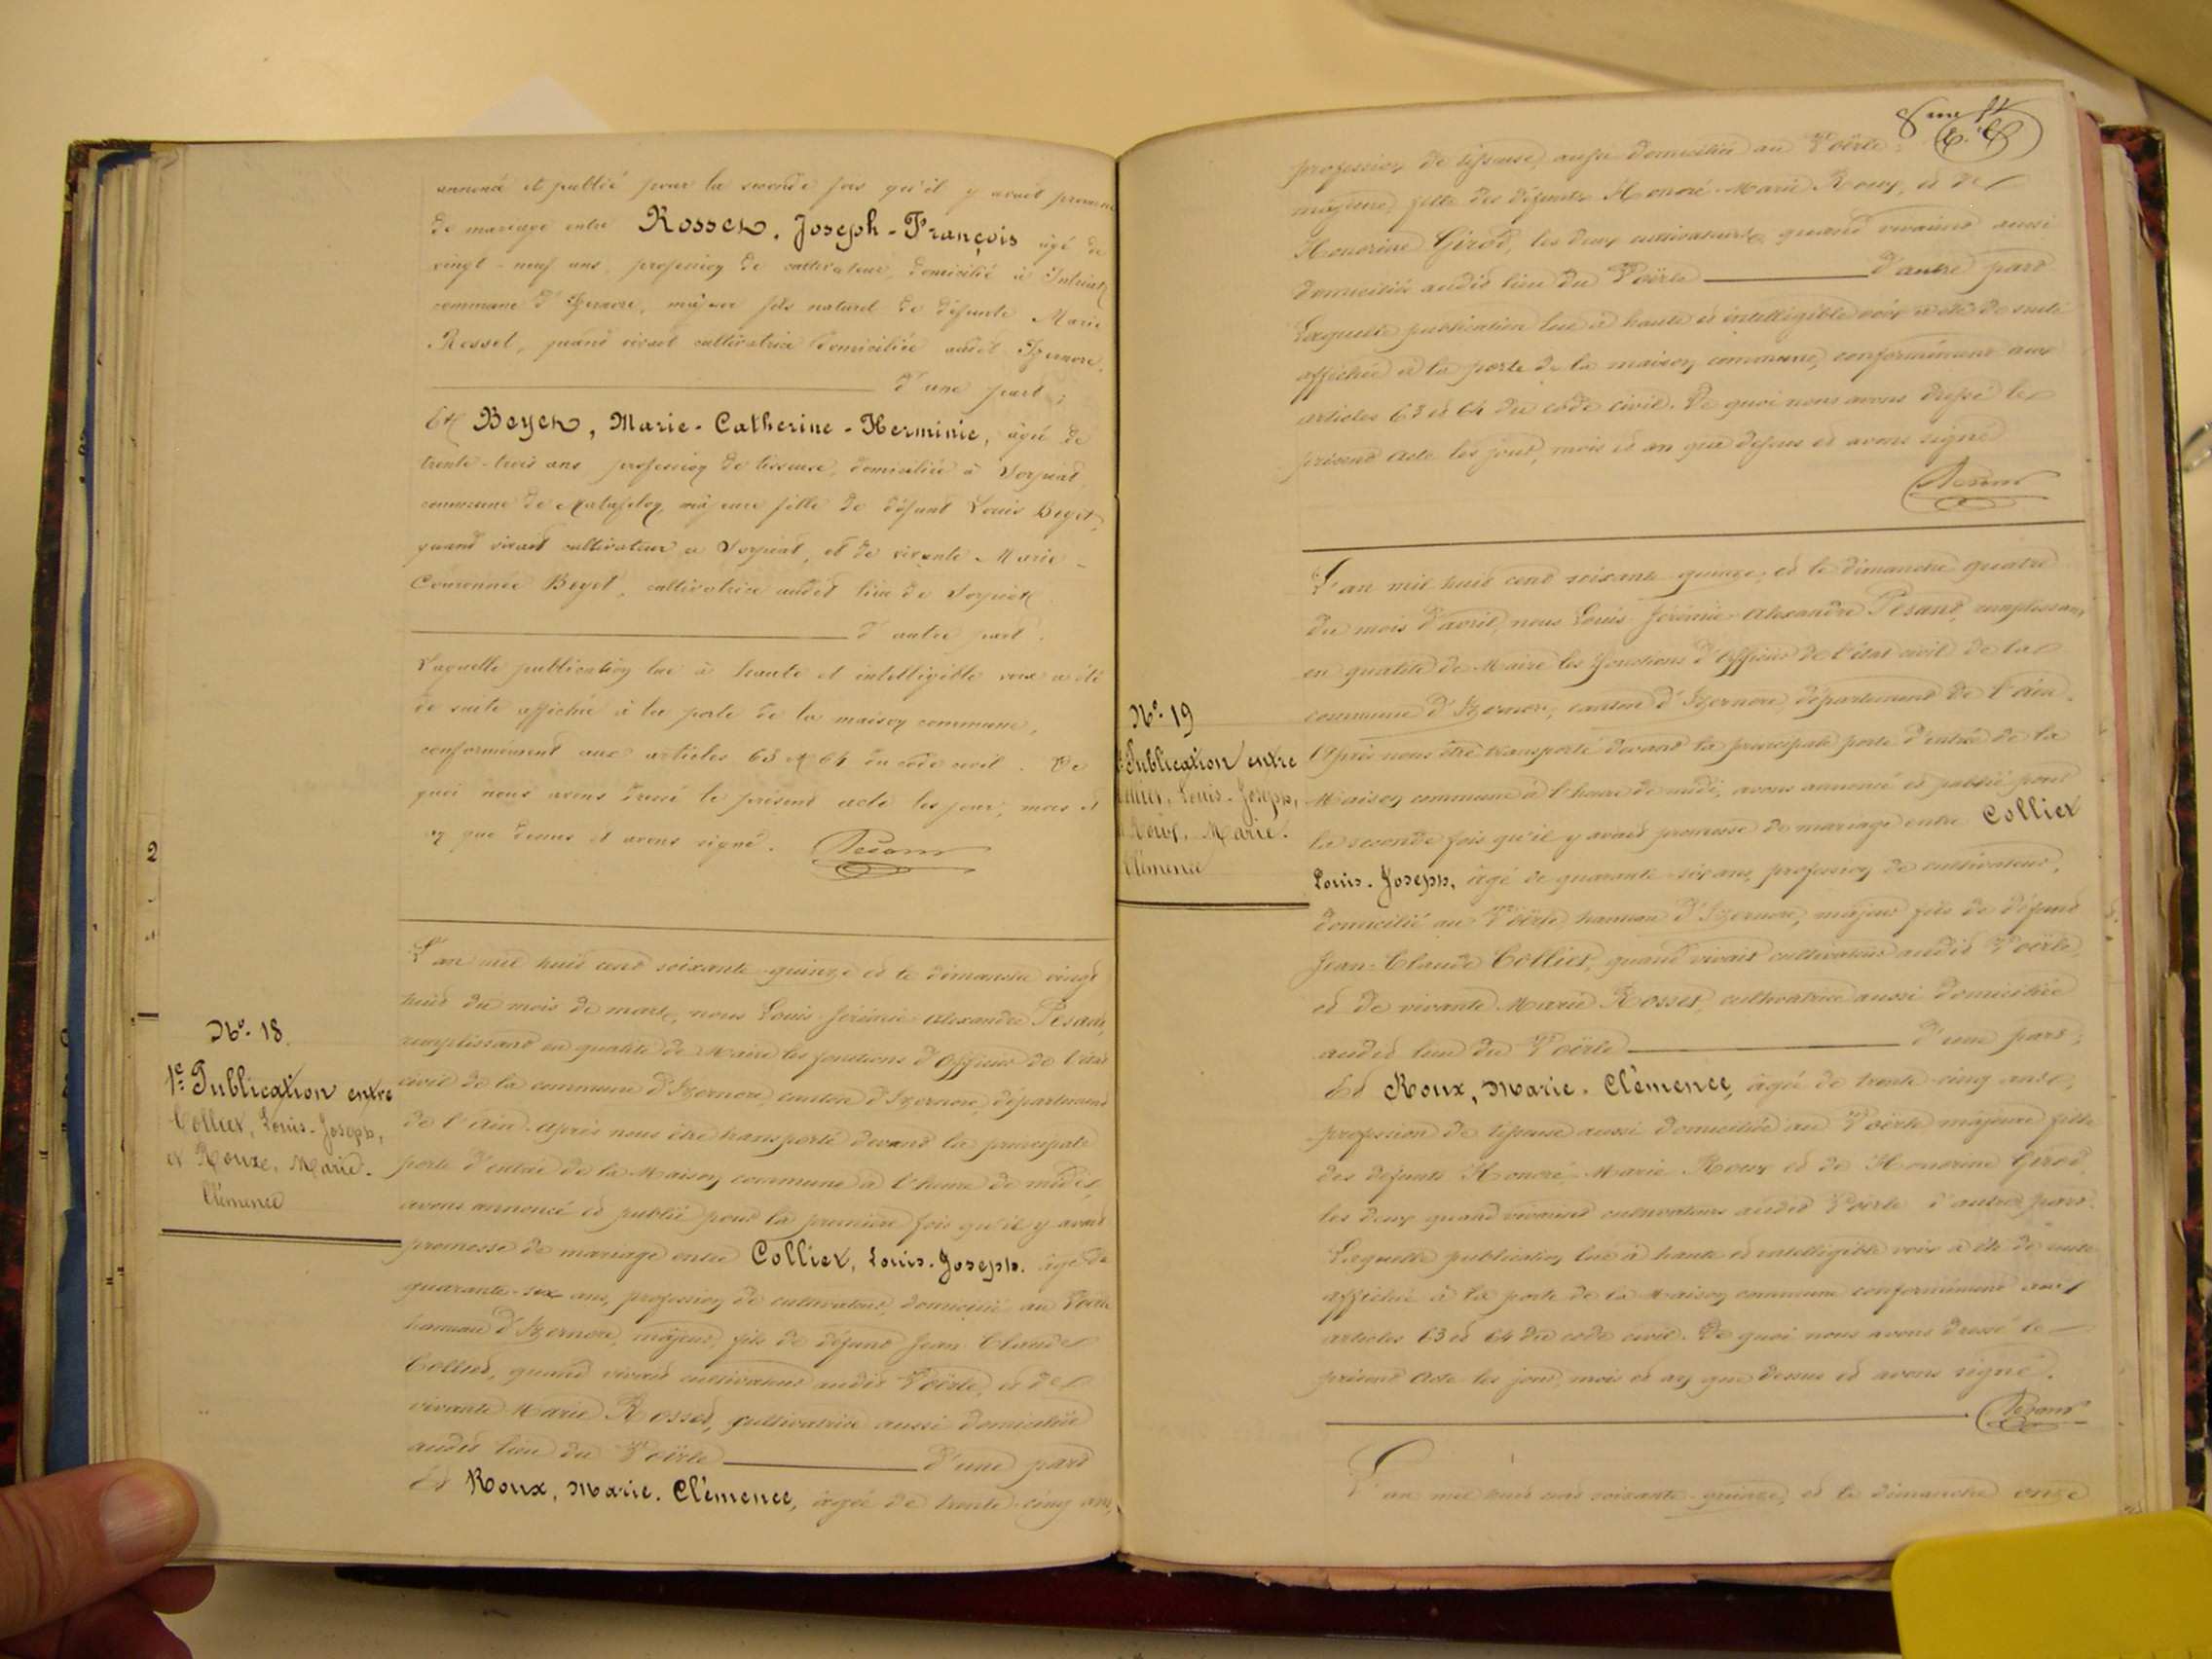 annoncé et publié pour la seconde fois qu'il y avait promesse
de mariage entre Rosset, Joseph-François âgé de
vingt-neuf ans, profession de cultivateur, domicilié à Intriat
commune d'Izernore, majeur fils naturel de défunte Marie
Rosset, quand vivait cultivatrice domiciliée audit Izernore,
d'une part;
Et Beyet, Marie-Catherine-Herminie, âgée de
trente-trois ans, profession de tisseuse, domiciliée à Sorpiat,
commune de Matafelon, majeure fille de défunt Louis Beyet,
quand vivait cultivateur à Sorpiat, et de vivante Marie-
Couronnée Beyet, cultivatrice audit lieu de Sorpiat
d'autre part.
Laquelle publication lue à haute et intelligible voix a été
de suite affichée à la porte de la maison commune,
conformément aux articles 63 et 64 du code civil. De
quoi nous avons dressé le présent acte les jour, mois et
an que dessus et avons signé. Pesant
2
No. 18.
1e. Publication entre
Collet, Louis-Joseph,
et Roux, Marie.
Clémence
L'an mil huit cent soixante-quinze et le dimanche vingt
huit du mois de mars, nous Louis-Jérémie-Alexandre Pesant,
remplissant en qualité de Maire les fonctions d'Officier de l'état
civil de la commune d'Izernore, canton d'Izernore, département
de l'Ain. Après nous être transporté devant la principale
porte d'entrée de la Maison commune à l'heure de midi,
avons annoncé et publié pour la première fois qu'il y avait
promesse de mariage entre Collet, Louis-Joseph, âgé de
quarante-six ans, profession de cultivateur, domicilié au Voërle
hameau d'Izernore, majeur, fils de défunt Jean-Claude
Collet, quand vivait cultivateur audit Voërle, et de
vivante Marie Rosset, cultivatrice aussi domiciliée
audit lieu du Voërle d'une part
Et Roux, Marie-Clémence, âgée de trente-cinq ans,
8me ft
profession de tisseuse, aussi domiciliée au Voërle,
majeure, fille des défunts Honoré-Marie Roux, et de
Honorine Girod, les deux cultivateurs, quand vivaient aussi
domiciliés audit lieu du Voërle d'autre part
Laquelle publication lue à haute et intelligible voix a été de suite
affichée à la porte de la maison commune, conformément aux
articles 63 et 64 du code civil. De quoi nous avons dressé le
présent acte les jour, mois et an que dessus et avons signé
Pesant
No. 19
Publication entre
Collet, Louis-Joseph,
et Roux, Marie.
Clémence
L'an mil huit cent soixante quinze, et le dimanche quatre
du mois d'avril, nous Louis-Jérémie-Alexandre Pesant, remplissant
en qualité de Maire les fonctions d'Officier de l'état civil de la
commune d'Izernore, canton d'Izernore, département de l'Ain.
Après nous être transporté devant la principale porte d'entrée de la
Maison commune à l'heure de midi, avons annoncé et publié pour
la seconde fois qu'il y avait promesse de mariage entre Collet
Louis-Joseph, âgé de quarante-six ans, profession de cultivateur,
domicilié au Voërle, hameau d'Izernore, majeur fils de défunt
Jean-Claude Collet, quand vivait cultivateur audit Voërle,
et de vivante Marie Rosset, cultivatrice aussi domiciliée
audit lieu du Voërle d'une part;
Et Roux, Marie-Clémence, âgée de trente-cinq ans,
profession de tisseuse aussi domiciliée au Voërle majeure fille
des défunts Honoré-Marie Roux et de Honorine Girod,
les deux quand vivaient cultivateurs audit Voërle d'autre part.
Laquelle publication lue à haute et intelligible voix a été de suite
affichée à la porte de la Maison commune conformément aux
articles 63 et 64 du code civil. De quoi nous avons dressé le
présent acte les jour, mois et an que dessus et avons signé.
Pesant
L'an mil huit cent soixante-quinze, et le dimanche onze